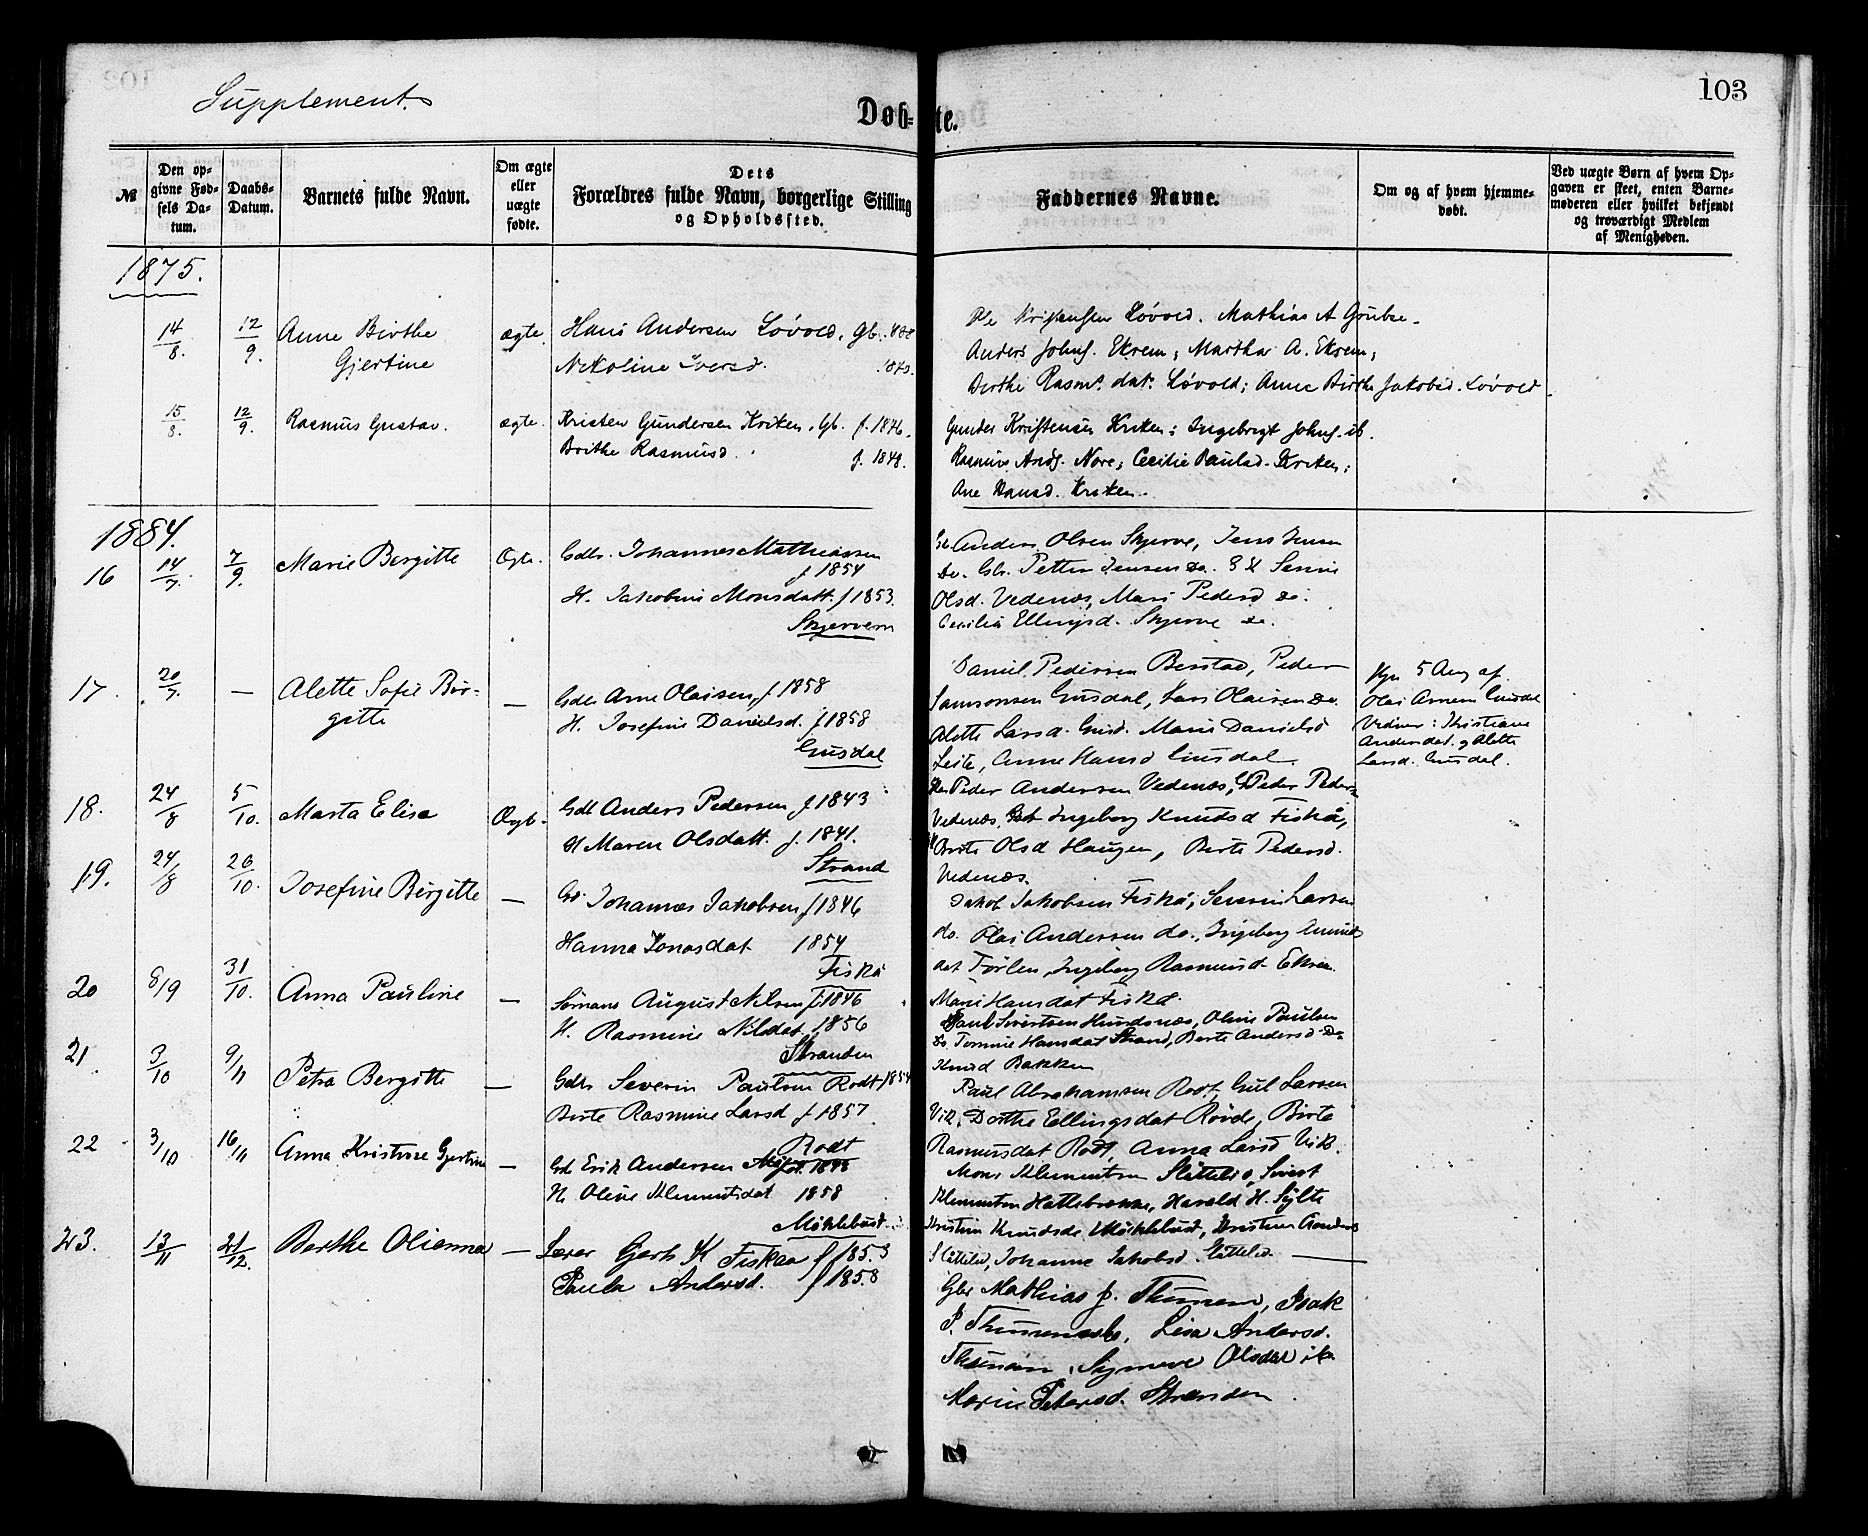 103
Supplement.
Døb-te.
№
Den opgivne Fødsels Datum.
Daabs-Datum.
Barnets fulde Navn.
Om ægte eller uægte fødte.
Dets Forældres fulde Navn, borgerlige Stilling og Opholdssted.
Faddernes Navne.
Om og af hvem hjemmedøbt.
Ved uægte Børn af hvem Opgaven er skeet, enten Barnemoderen eller hvilket bekjendt og troværdigt Medlem af Menigheden.
1875.
14/8. 12/9. Anne Birthe Gjertine ægte. Hans Andersen Løvold, Gb.
Nikoline Iversd.
Løvold. Mathias A
Anders Johns. Ekrem; Martha A. Ekrem;
Berthe Rasm. dat. Løvold; Anne Birthe Jakobsd. Løvold
15/8. 12/9. Rasmus Gustav. ægte. Kristen Gundersen Kriken, Gb. f. 1846.
Birthe Rasmusd. f. 1848.
Gunder Kristensen Kriken; Ingebrigt Johns. ib.
Rasmus Ands. Nore; Cecilie Paulsd. Kriken;
Ane Hansd. Kriken.
1884.
16 14/7. 7/9. Marie Bergitte Ægte. Gdbr. Johannes Mathiassen
f 1854
H. Jakobine Monsdatt. f 1853.
Skjerven
Anders Olsen Skjerve, Jens
Do. Gbr. Petter Jensen Do.
Olsd. Vedenæs, Mari Pedersd do.
Cecilia Ellingsd. Skjerve do.
17. 20/7. — Alette Sofie Bergitte — Gdb Arne Olaisen, f 1858
H. Josefine Danielsd. f 1858
Gusdal
Daniel Pedersen Berstad, Peder
Samsonsen Gusdal, Lars Olaisen Do.
Alette Larsd. Gusd. Marie Danielsd
Leite, Anne Hansd Gusdal
Hjm 5 Aug af
Olai Arnesen Gusdal
Vidner: Kristiane
Andersdat. og Alette
Larsd. Gusdal.
18. 24/8 5/10. Marta Elise Ægt. Gdb Anders Pedersen f 1843
H Maren Olsdatt. f. 1841.
Strand
Peder Andersen Vedenæs, G Peder Peders
Vedenæs, Ingeborg Knutsd Fiskå,
Berte Olsd Haugen, Berte Pedersd.
Vedenæs.
19. 24/8 26/10. Josefine Birgitte — Gb. Johannes Jakobsen f 1846
Hanna Jonasdat 1854
Fiskå
Jakob Jakobsen Fiskå, Severin Larsen
do. Olai Andersen do., Ingeborg
dat Førlen, Ingeborg Rasmusd Ekrem
Marie Hansdat Fiskå.
20 8/9 31/10. Anna Pauline — Sømand August Nilsen f 1846
H. Rasmine Nilsdat. 1856
Stranden
Paul Sivertsen Hundsnæs, Oline Paulsen
Do. Tomine Hansdat Strand, Berte Andersd Do
Knud Bakken
21. 3/10 9/11 Petra Bergitte — Gdbr Severin Paulsen Rødt 1854
Berte Rasmine Larsd f 1857.
Rødt
Paul Abrahamsen Rødt, Gul Larsen
Vik, Dorthe Ellingsdat Røvde, Birte
Rasmusdat Rødt, Anna Larsd Vik.
22 3/10 16/11 Anna Kristine Gjertine — Gb Erik Andersen
H Oline Klemmetsdat 1858
Møklebust
Mons Klemmetsen Slettelid, Sivert
Klemmetsen Hatlebrekke, Harald H. Sylte
Kristine Knudsd. Møklebust, Kristine Anders
Slettelid, Johanne Jakobsd. Slettelid.
23. 13/11 21/12. Berthe Olianna — Lærer Gert K Fiskaa f 1853
Paula Andersd. f 1858
Gbr Mathias P. Thunem, Isak
P. Thunem, Lisa Andersd.
Thunem, Synneve Olsdat ib
Marie Petersd. Stranden.